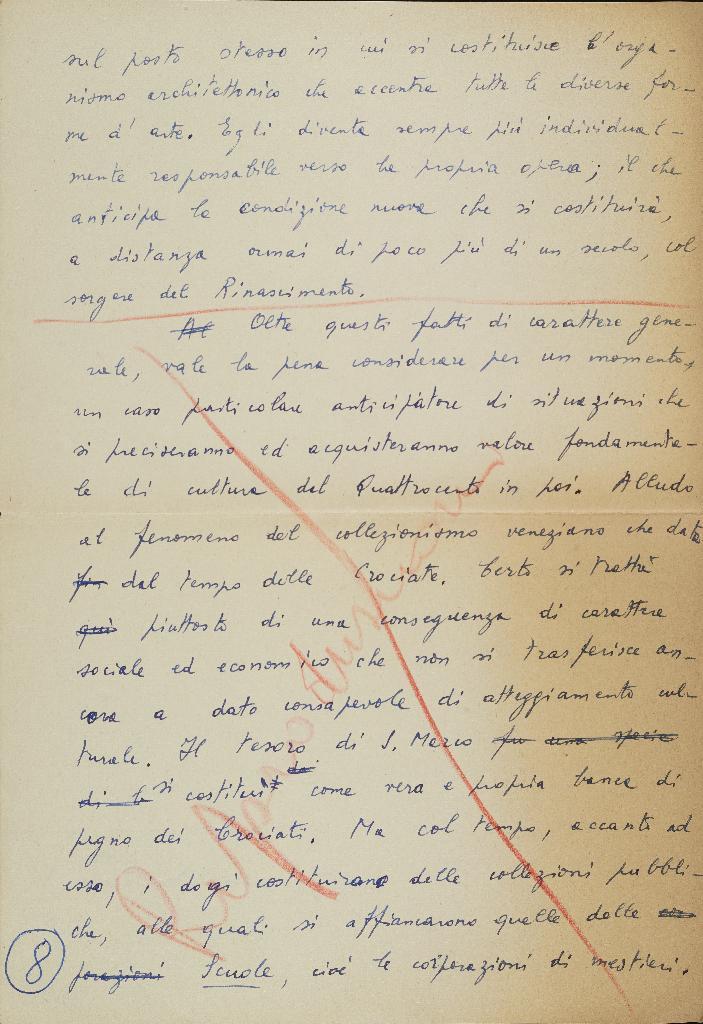 sul posto stesso in cui si costituisce l'orga-
nismo architettonico che accentra tutte le diverse for-
me d'arte. Egli diventa sempre più individual-
mente responsabile verso la propria opera; il che
anticipa la condizione nuova che si costituirà,
a distanza ormai di poco più di un secolo, col
sorgere del Rinascimento.
Al Oltre questi fatti di carattere gene-
rale, vale la pena considerare per un momento,
un caso particolare anticipatore di situazioni che
si preciseranno ed acquisteranno valore fondamenta-
le di cultura dal Quattrocento in poi. Alludo
al fenomeno del collezionismo veneziano che data
fin dal tempo delle Crociate. Certo si tratta
qui piuttosto di una conseguenza di carattere
sociale ed economico che non si trasferisce an-
cora a dato consapevole di atteggiamento cul-
turale. Il tesoro di S. Marco fu una specie
di b si costituì come vera e propria banca di
pegno dei Crociati. Ma col tempo, accanto ad
esso, i dogi costituirono delle collezioni pubbli-
che, alle quali si affiancarono quelle delle cor-
porazioni Scuole, cioè le corporazioni di mestieri.
8